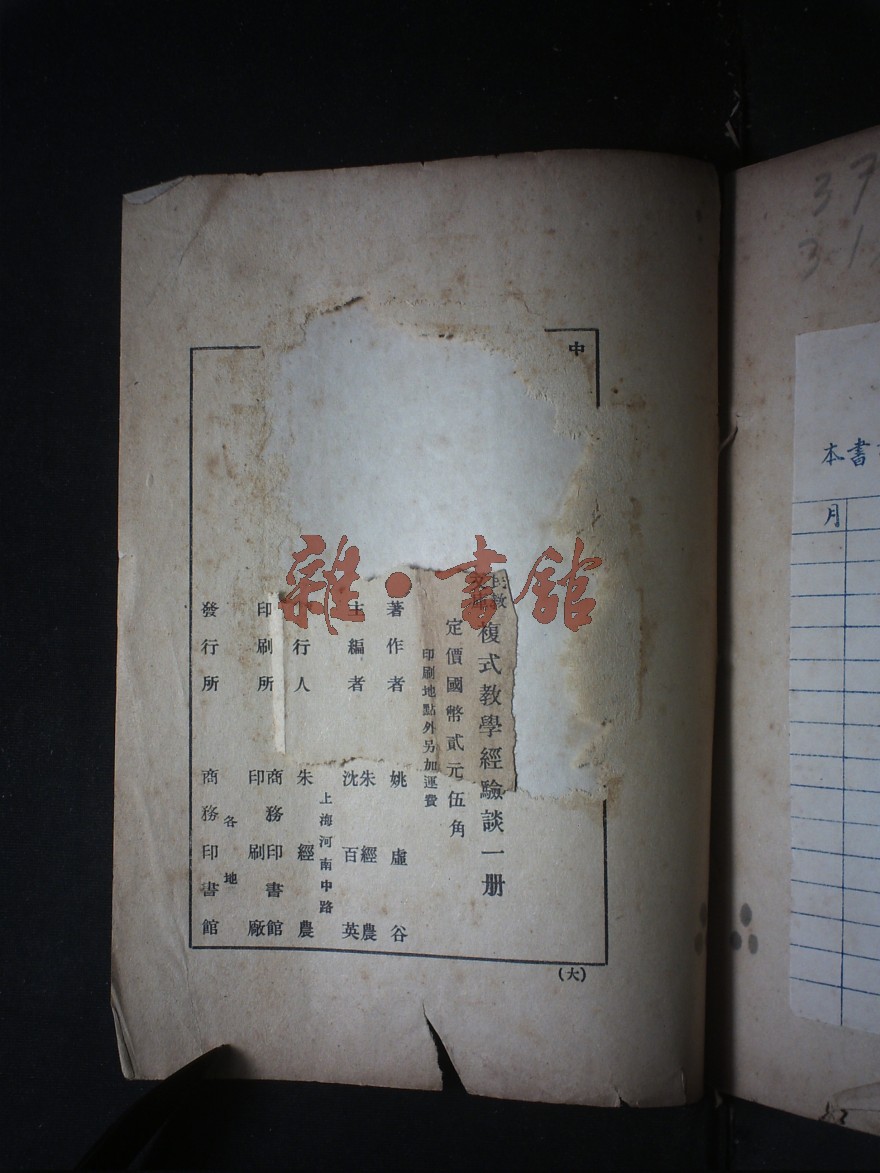 中
複式教學經驗談一册
定價國幣貳元伍角
印刷地點外另加運費
著作者 姚虛谷
主編者 朱經農 沈百英
行人 朱經農
上海河南中路
印刷所 商務印書館印刷廠
發行所 各地 商務印書館
(大)
雜·書館
本書
月